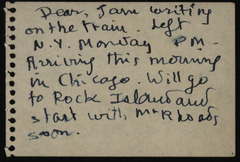 Dear, I am writing
on the train. Left
N.Y. Monday P.M.
Arriving this morning
in Chicago. Will go
to Rock Island and
start with Mr Rhoads
soon.